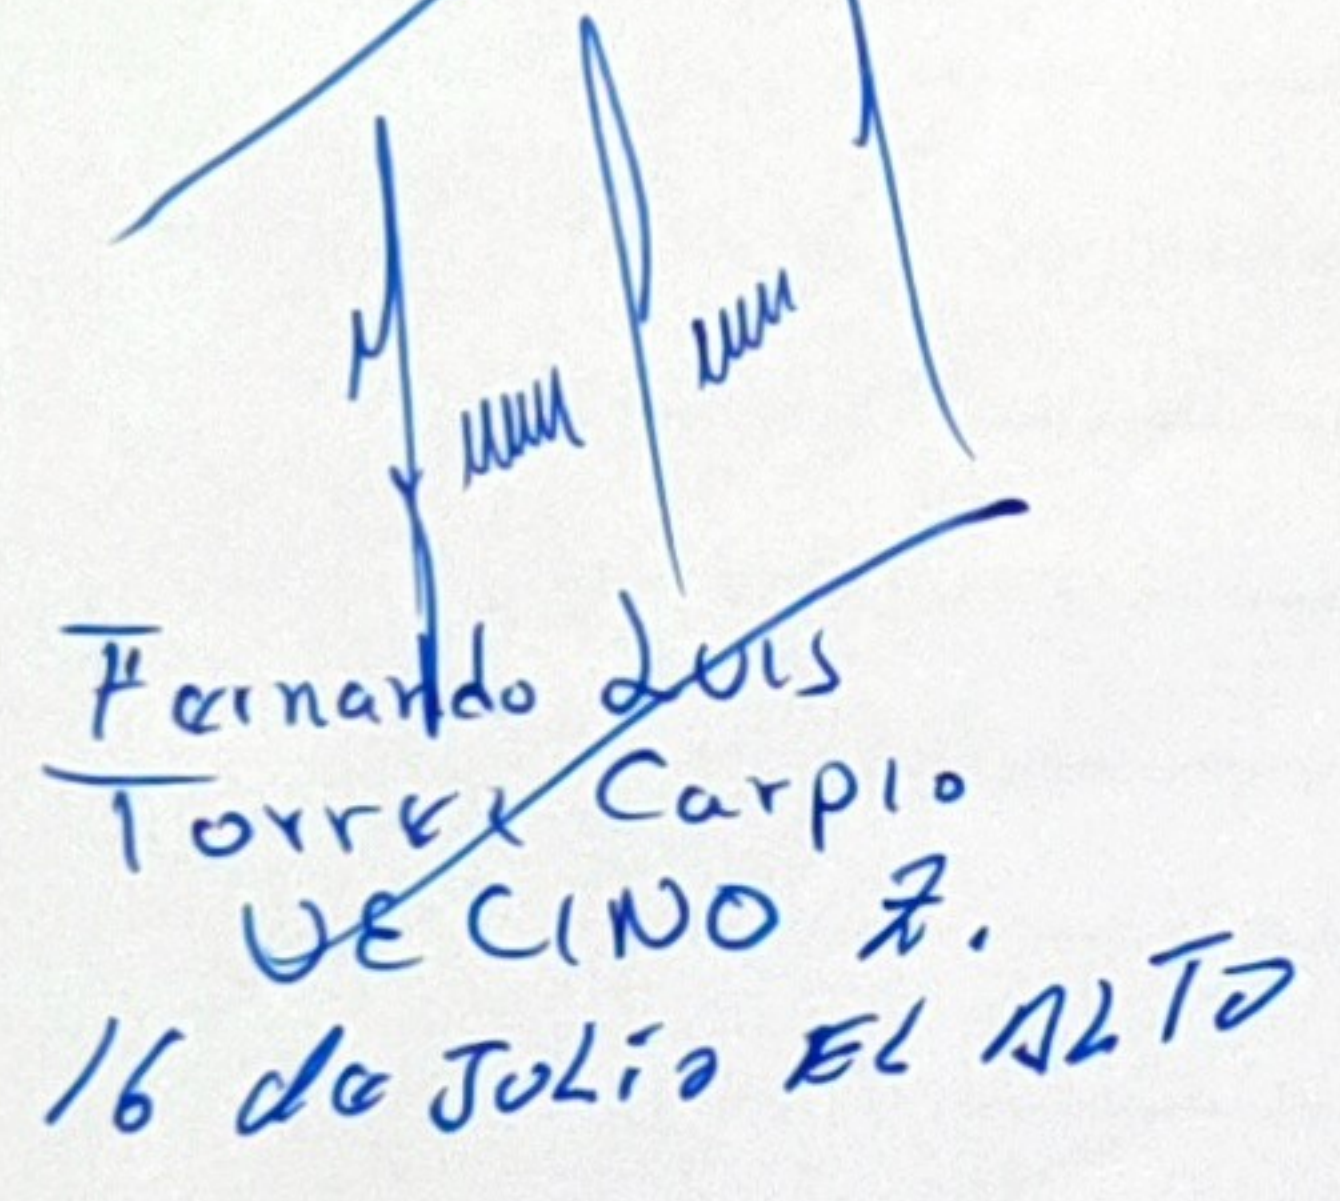 Fernando Luis
Torrez Carpio
VECINO Z.
16 de JULio EL ALTO